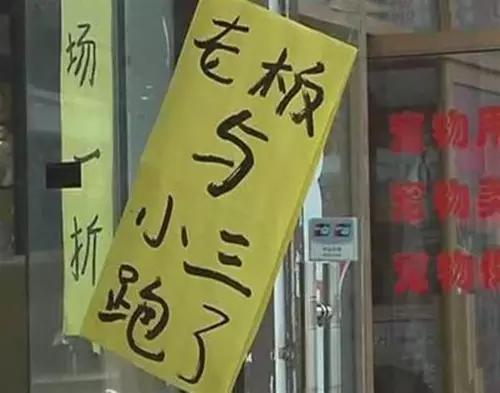 场一折
老板
与
小三
跑了
宠物用
宠物美
宠物